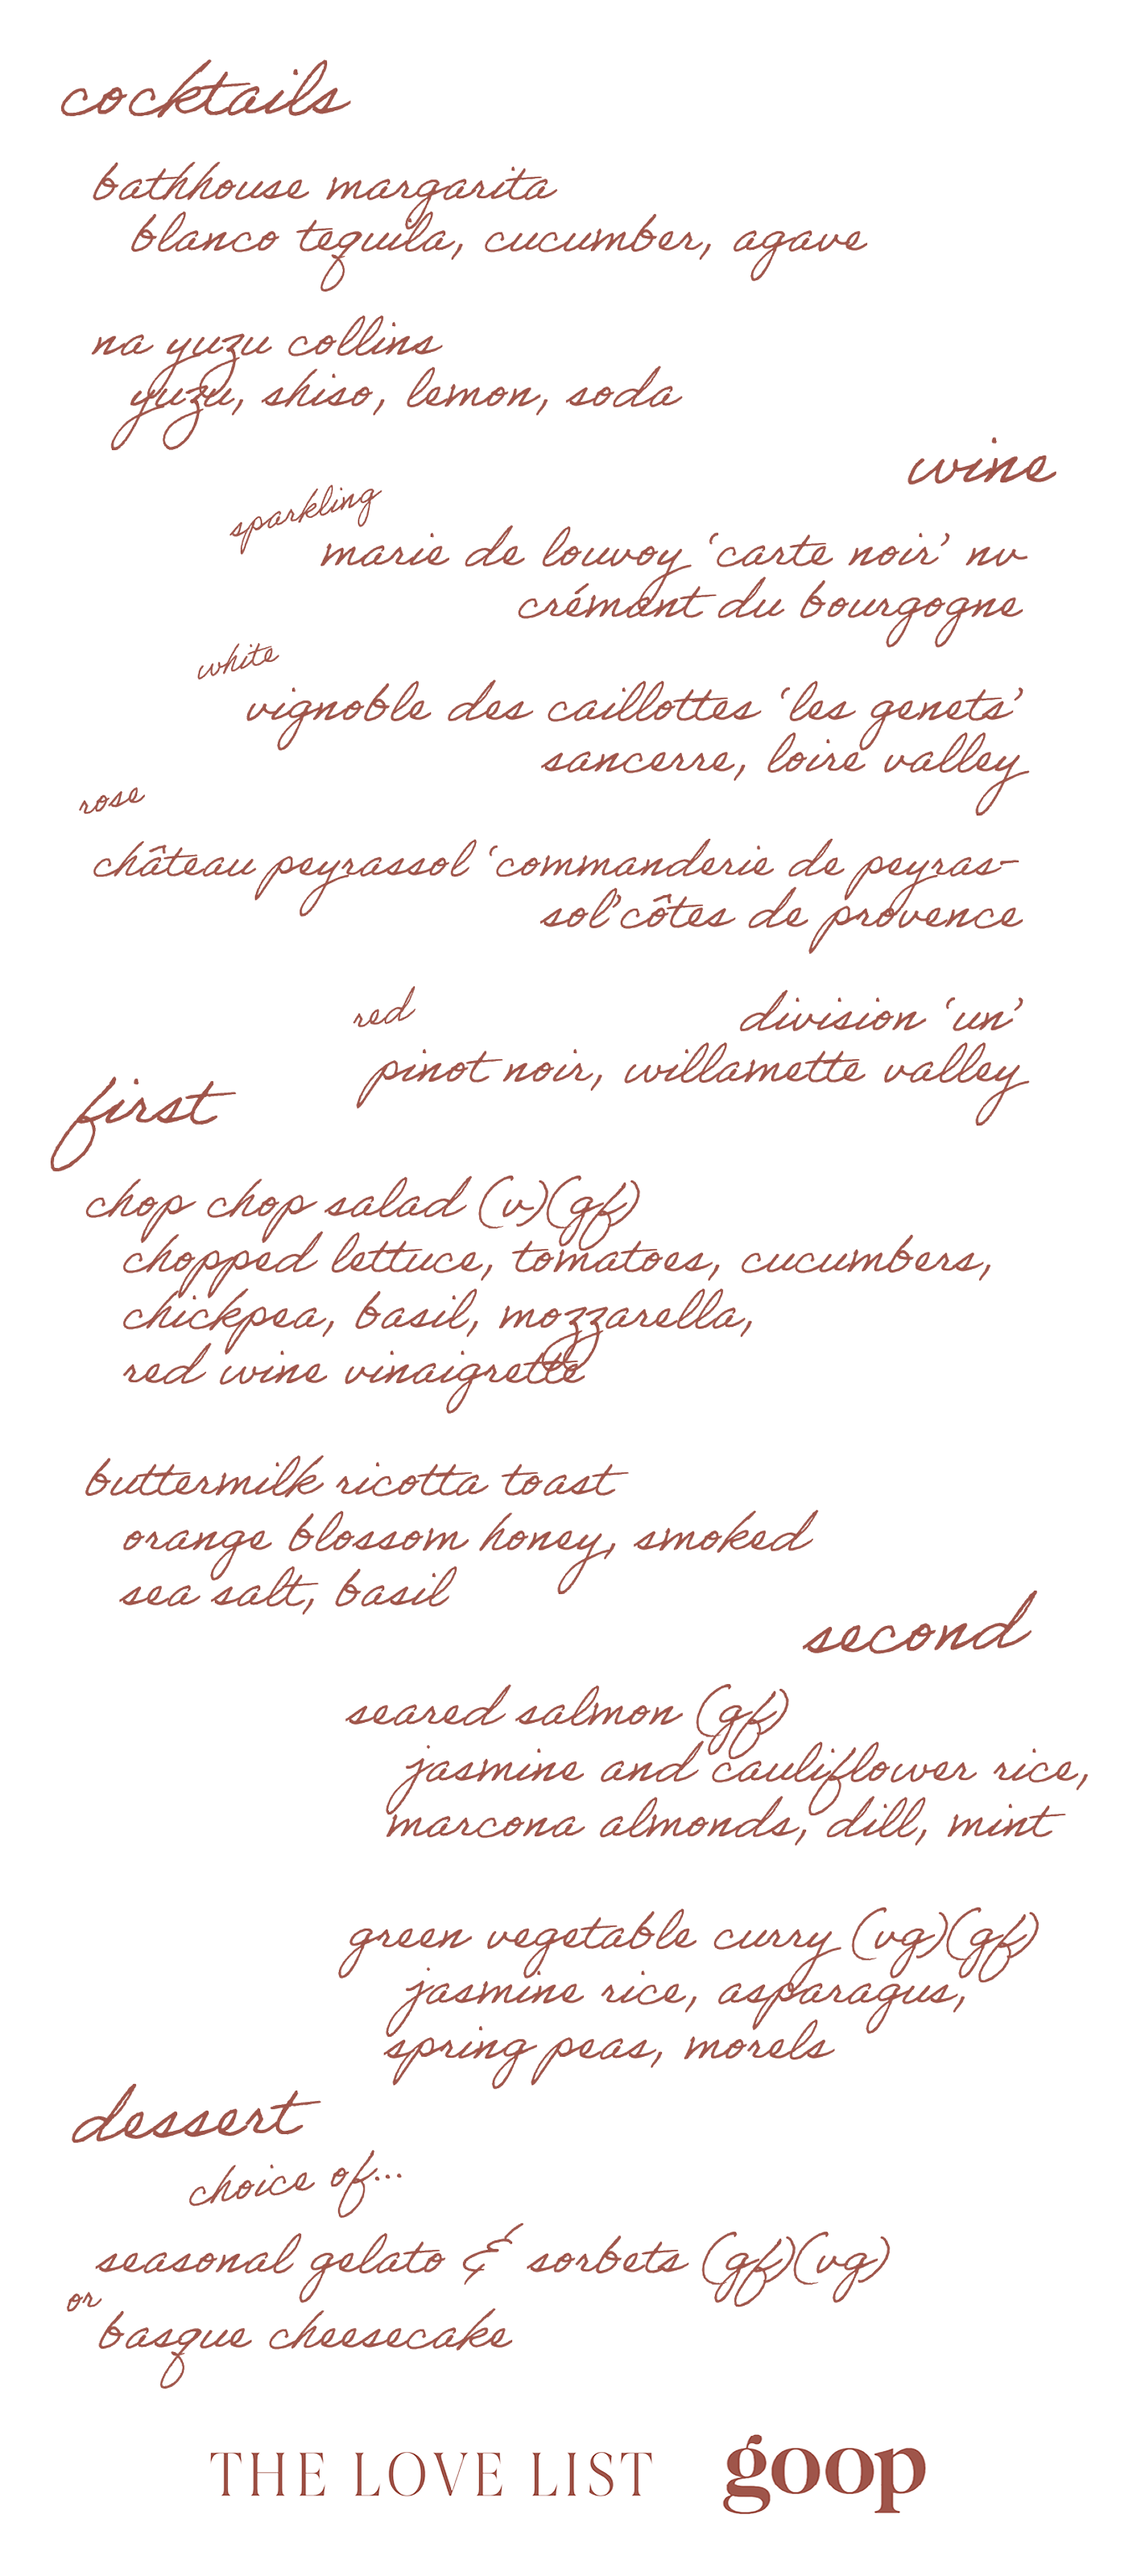 cocktails
bathhouse margarita
blanco tequila, cucumber, agave
na yuzu collins
yuzu, shiso, lemon, soda
wine
sparkling
marie de louvoy ‘carte noir’ nv
crémant du bourgogne
white
vignoble des caillottes ‘les genets’
sancerre, loire valley
rose
château peyrassol ‘commanderie de peyras-
sol’côtes de provence
red
division ‘un’
pinot noir, willamette valley
first
chop chop salad (v)(gf)
chopped lettuce, tomatoes, cucumbers,
chickpea, basil, mozzarella,
red wine vinaigrette
buttermilk ricotta toast
orange blossom honey, smoked
sea salt, basil
second
seared salmon (gf)
jasmine and cauliflower rice,
marcona almonds, dill, mint
green vegetable curry (vg)(gf)
jasmine rice, asparagus,
spring peas, morels
dessert
choice of...
seasonal gelato & sorbets (gf)(vg)
or
basque cheesecake
THE LOVE LIST goop